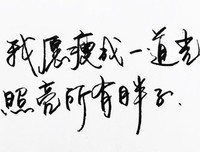 我愿瘦成一道光
照亮所有胖子.